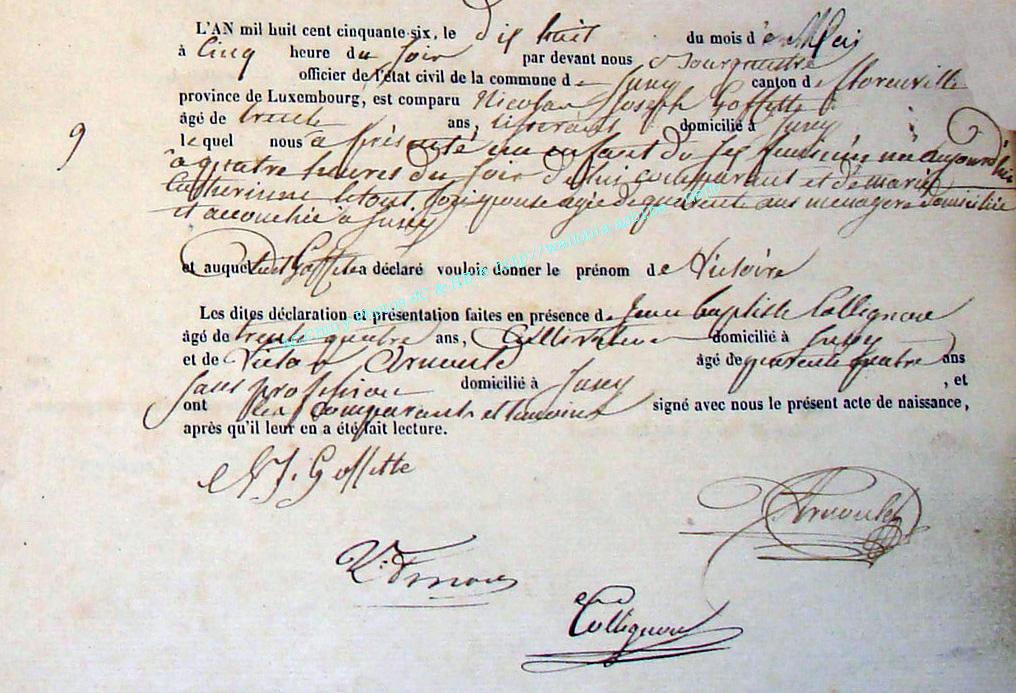 L'AN mil huit cent cinquante-six, le dix huit du mois de Mai
à Cinq heure du Soir par devant nous Bourgmestre
officier de l'état civil de la commune de canton de florenville
province de Luxembourg, est comparu Nicolas Joseph Goffette
âgé de trente ans, domicilié à
9 lequel nous a présenté un enfant du Sex feminin né aujourd'hui
à quatre heures du Soir de lui comparant et de marie
Catherinne Son epouse agée de quarente ans menagere domiciliée
et accouchée à
et auquel Goffette a déclaré vouloir donner le prénom de Victoire
Les dites déclaration et présentation faites en présence de Jean Baptiste Collignon
âgé de trente quatre ans, Cultivateur domicilié à
et de Victor Arnould âgé de quarente quatre ans
Sans profession domicilié à , et
ont les comparants et temoins signé avec nous le présent acte de naissance,
après qu'il leur en a été fait lecture.
N J. Goffette
Arnould
Collignon